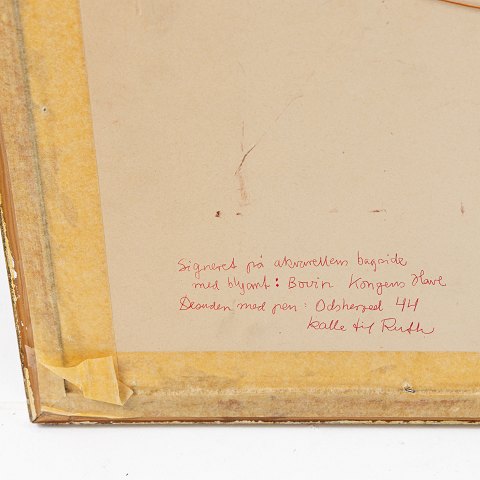 Signeret på akvarellens bagside
med blyant: Bovin Kongens Have
Desuden med pen: Odsherred 44
Kalle til Ruth